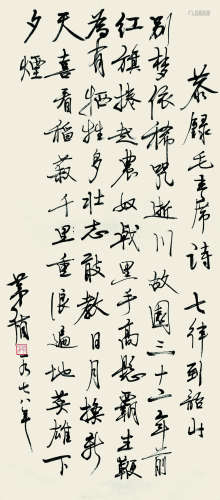 恭録毛主席詩 七律到韶山
别梦依稀咒逝川故園三十二年前
红旗捲起農奴戟黑手高懸霸主鞭
為有牺牲多壮志敢教日月换新
天喜看稻菽千里重浪遍地英雄下
夕煙
茅盾 一九七八年